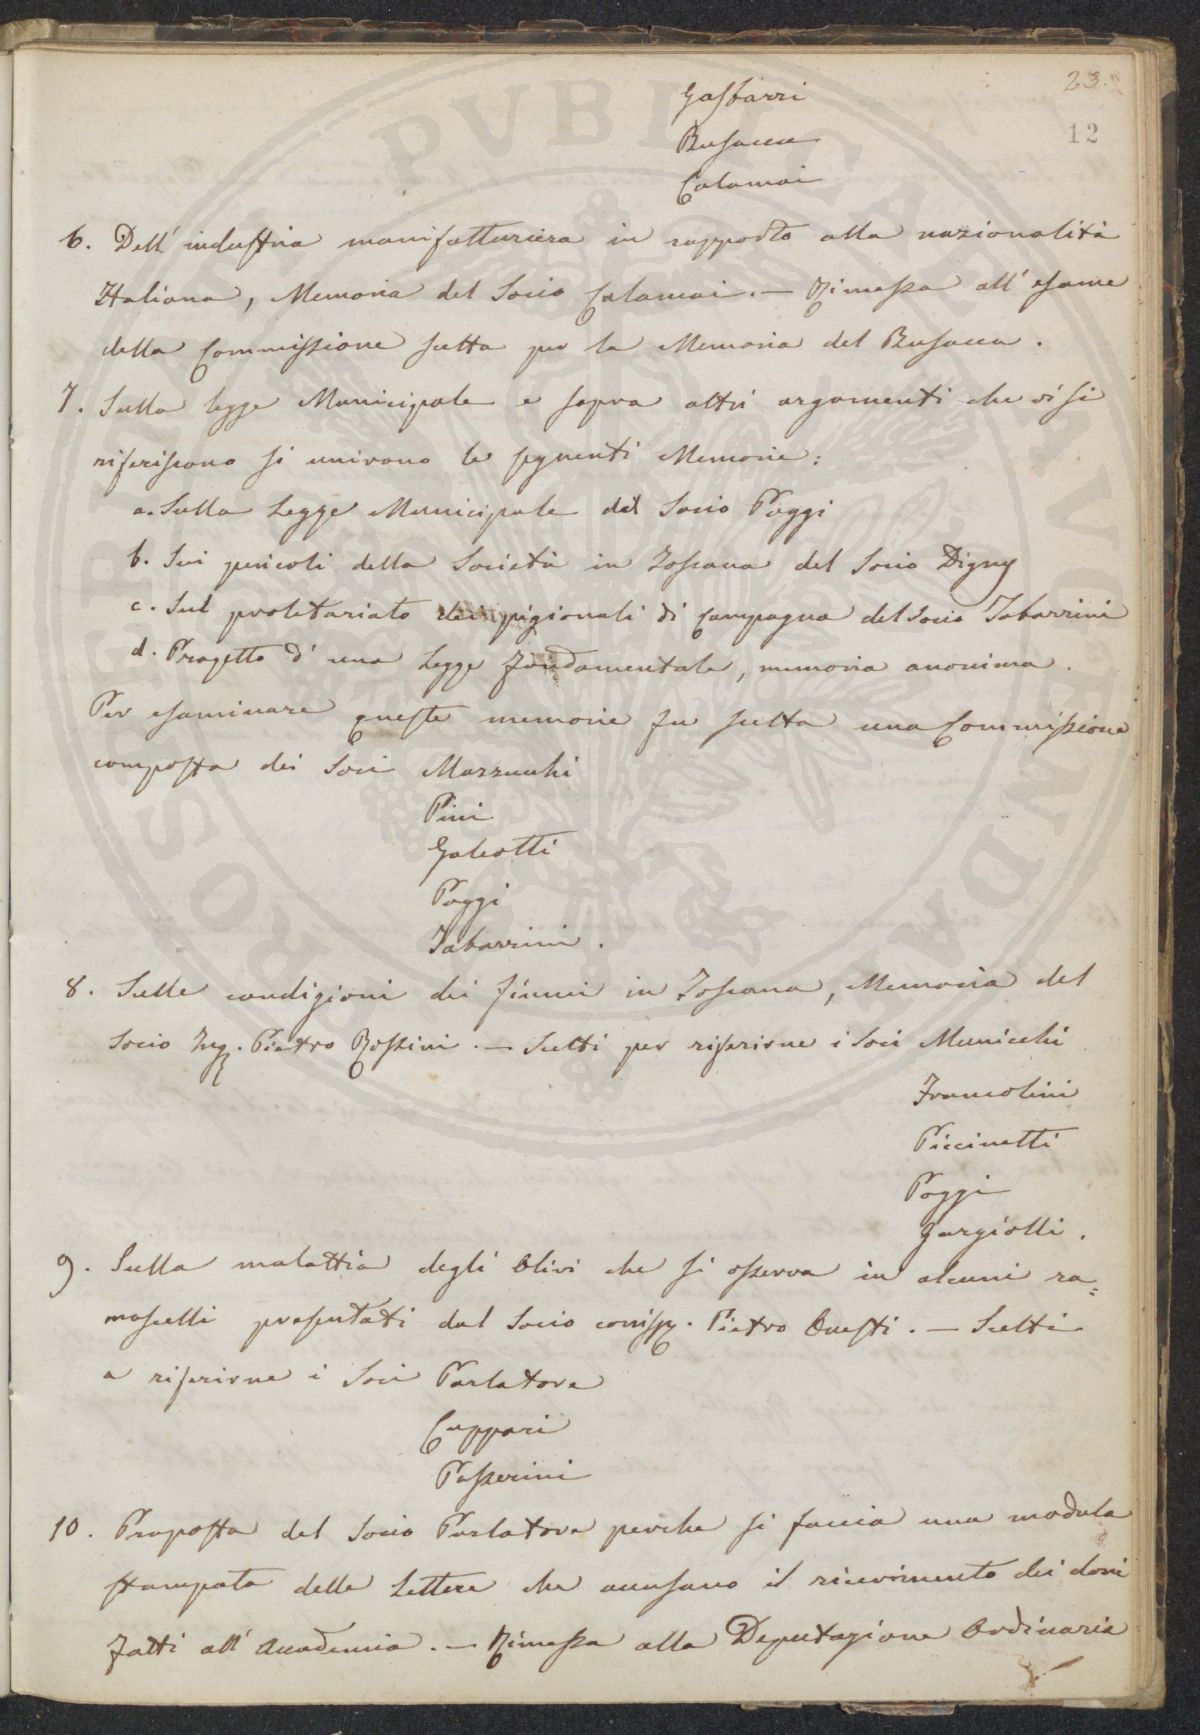 23.
12
Gasbarri
Busacca
Calamai
6. Dell'industria manifatturiera in rapporto alla nazionalità
Italiana, Memoria del Socio Calamai. — Rimessa all'esame
della Commissione scelta per la Memoria del Busacca.
7. Sulla legge Municipale e sopra altri argomenti che vi si
riferiscono si univano le seguenti Memorie:
a. Sulla Legge Municipale del Socio Poggi
b. Sui pericoli della Società in Toscana del Socio Digny
c. Sul proletariato dei pigionali di Campagna del Socio Tabarrini
d. Progetto d'una Legge fondamentale, memoria anonima.
Per esaminare queste memorie fu scelta una Commissione
composta dei Soci Mazzucchi
Pini
Galeotti
Poggi
Tabarrini.
8. Sulle condizioni dei fiumi in Toscana, Memoria del
Socio Ing. Pietro Rossini. — Scelti per riferirne i Soci Municchi
Francolini
Piccinetti
Poggi
Gargiolli.
9. Sulla malattia degli Olivi che si osserva in alcuni ra=
moscelli presentati dal Socio corrisp. Pietro Onesti. — Scelti
a riferirne i Soci Parlatore
Cuppari
Passerini
10. Proposta del Socio Parlatore perche si faccia una modula
stampata delle Lettere che accusano il ricevimento dei doni
fatti all'Accademia. — Rimessa alla Deputazione Ordinaria